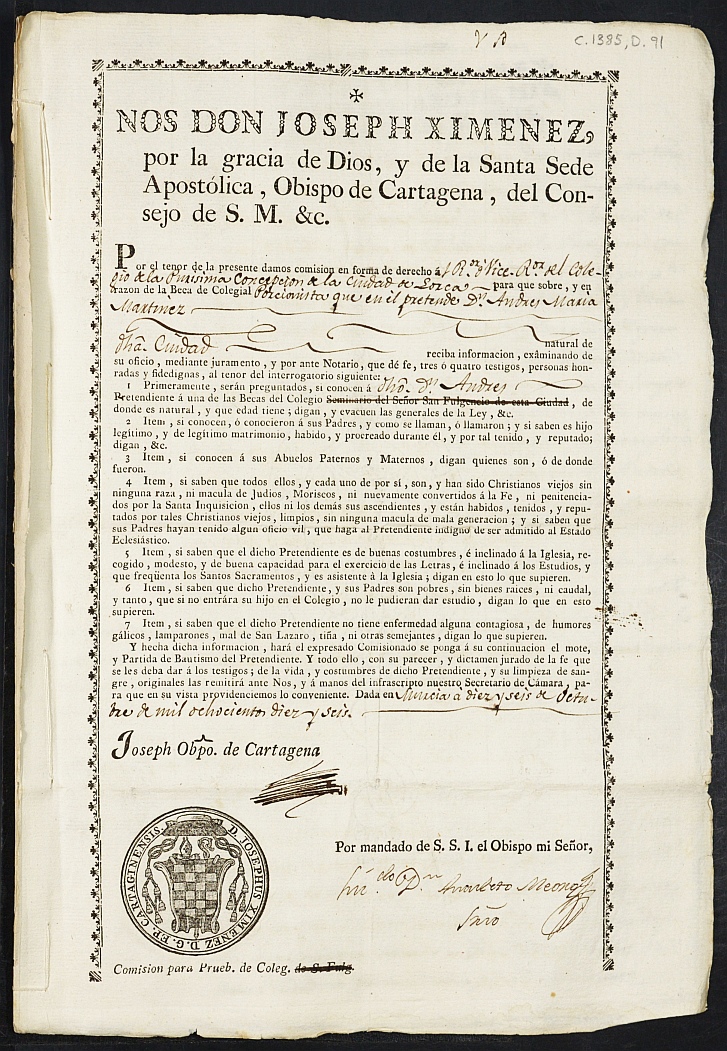 C.1385, D.91
NOS DON JOSEPH XIMENEZ,
por la gracia de Dios, y de la Santa Sede
Apostólica, Obispo de Cartagena, del Con-
sejo de S. M. &c.
Por el tenor de la presente damos comision en forma de derecho á l Ror. ó Vice-Ror. del Cole-
gio de la Purisima Concepcion de la Ciudad de Lorca para que sobre, y en
razon de la Beca de Colegial Porcionista que en él pretende Dn. Andres Maria
Martinez
natural de
dha. Ciudad reciba informacion, exâminando de
su oficio, mediante juramento, y por ante Notario, que dé fe, tres ó quatro testigos, personas hon-
radas y fidedignas, al tenor del interrogatorio siguiente:
1 Primeramente, serán preguntados, si conocen á dho. Dn. Andres
Pretendiente á una de las Becas del Colegio Seminario del Señor San Fulgencio de esta Ciudad, de
donde es natural, y que edad tiene; digan, y evacuen las generales de la Ley, &c.
2 Item, si conocen, ó conocieron á sus Padres, y como se llaman, ó llamaron; y si saben es hijo
legítimo, y de legítimo matrimonio, habido, y procreado durante él, y por tal tenido, y reputado;
digan, &c.
3 Item, si conocen á sus Abuelos Paternos y Maternos, digan quienes son, ó de donde
fueron.
4 Item, si saben que todos ellos, y cada uno de por sí, son, y han sido Christianos viejos sin
ninguna raza, ni macula de Judios, Moriscos, ni nuevamente convertidos á la Fe, ni penitencia-
dos por la Santa Inquisicion, ellos ni los demás sus ascendientes, y están habidos, tenidos, y repu-
tados por tales Christianos viejos, limpios, sin ninguna macula de mala generacion; y si saben que
sus Padres hayan tenido algun oficio vil, que haga al Pretendiente indigno de ser admitido al Estado
Eclesiástico.
5 Item, si saben que el dicho Pretendiente es de buenas costumbres, é inclinado á la Iglesia, re-
cogido, modesto, y de buena capacidad para el exercicio de las Letras, é inclinado á los Estudios, y
que freqüenta los Santos Sacramentos, y es asistente á la Iglesia; digan en esto lo que supieren.
6 Item, si saben que dicho Pretendiente, y sus Padres son pobres, sin bienes raices, ni caudal,
y tanto, que si no entrára su hijo en el Colegio, no le pudieran dar estudio, digan lo que en esto
supieren.
7 Item, si saben que el dicho Pretendiente no tiene enfermedad alguna contagiosa, de humores
gálicos, lamparones, mal de San Lazaro, tiña, ni otras semejantes, digan lo que supieren.
Y hecha dicha informacion, hará el expresado Comisionado se ponga á su continuacion el mote,
y Partida de Bautismo del Pretendiente. Y todo ello, con su parecer, y dictamen jurado de la fe que
se les deba dar á los testigos; de la vida, y costumbres de dicho Pretendiente, y su limpieza de san-
gre, originales las remitirá ante Nos, y á manos del infrascripto nuestro Secretario de Cámara, pa-
ra que en su vista providenciemos lo conveniente. Dada en Murcia á diez y seis de Octu-
bre de mil ochocientos diez y seis.
Joseph Obpo. de Cartagena
D. JOSEPHUS XIMENEZ D. G. EP. CARTAGINENSIS.
Por mandado de S. S. I. el Obispo mi Señor,
Srio
Comision para Prueb. de Coleg. de S. Fulg.